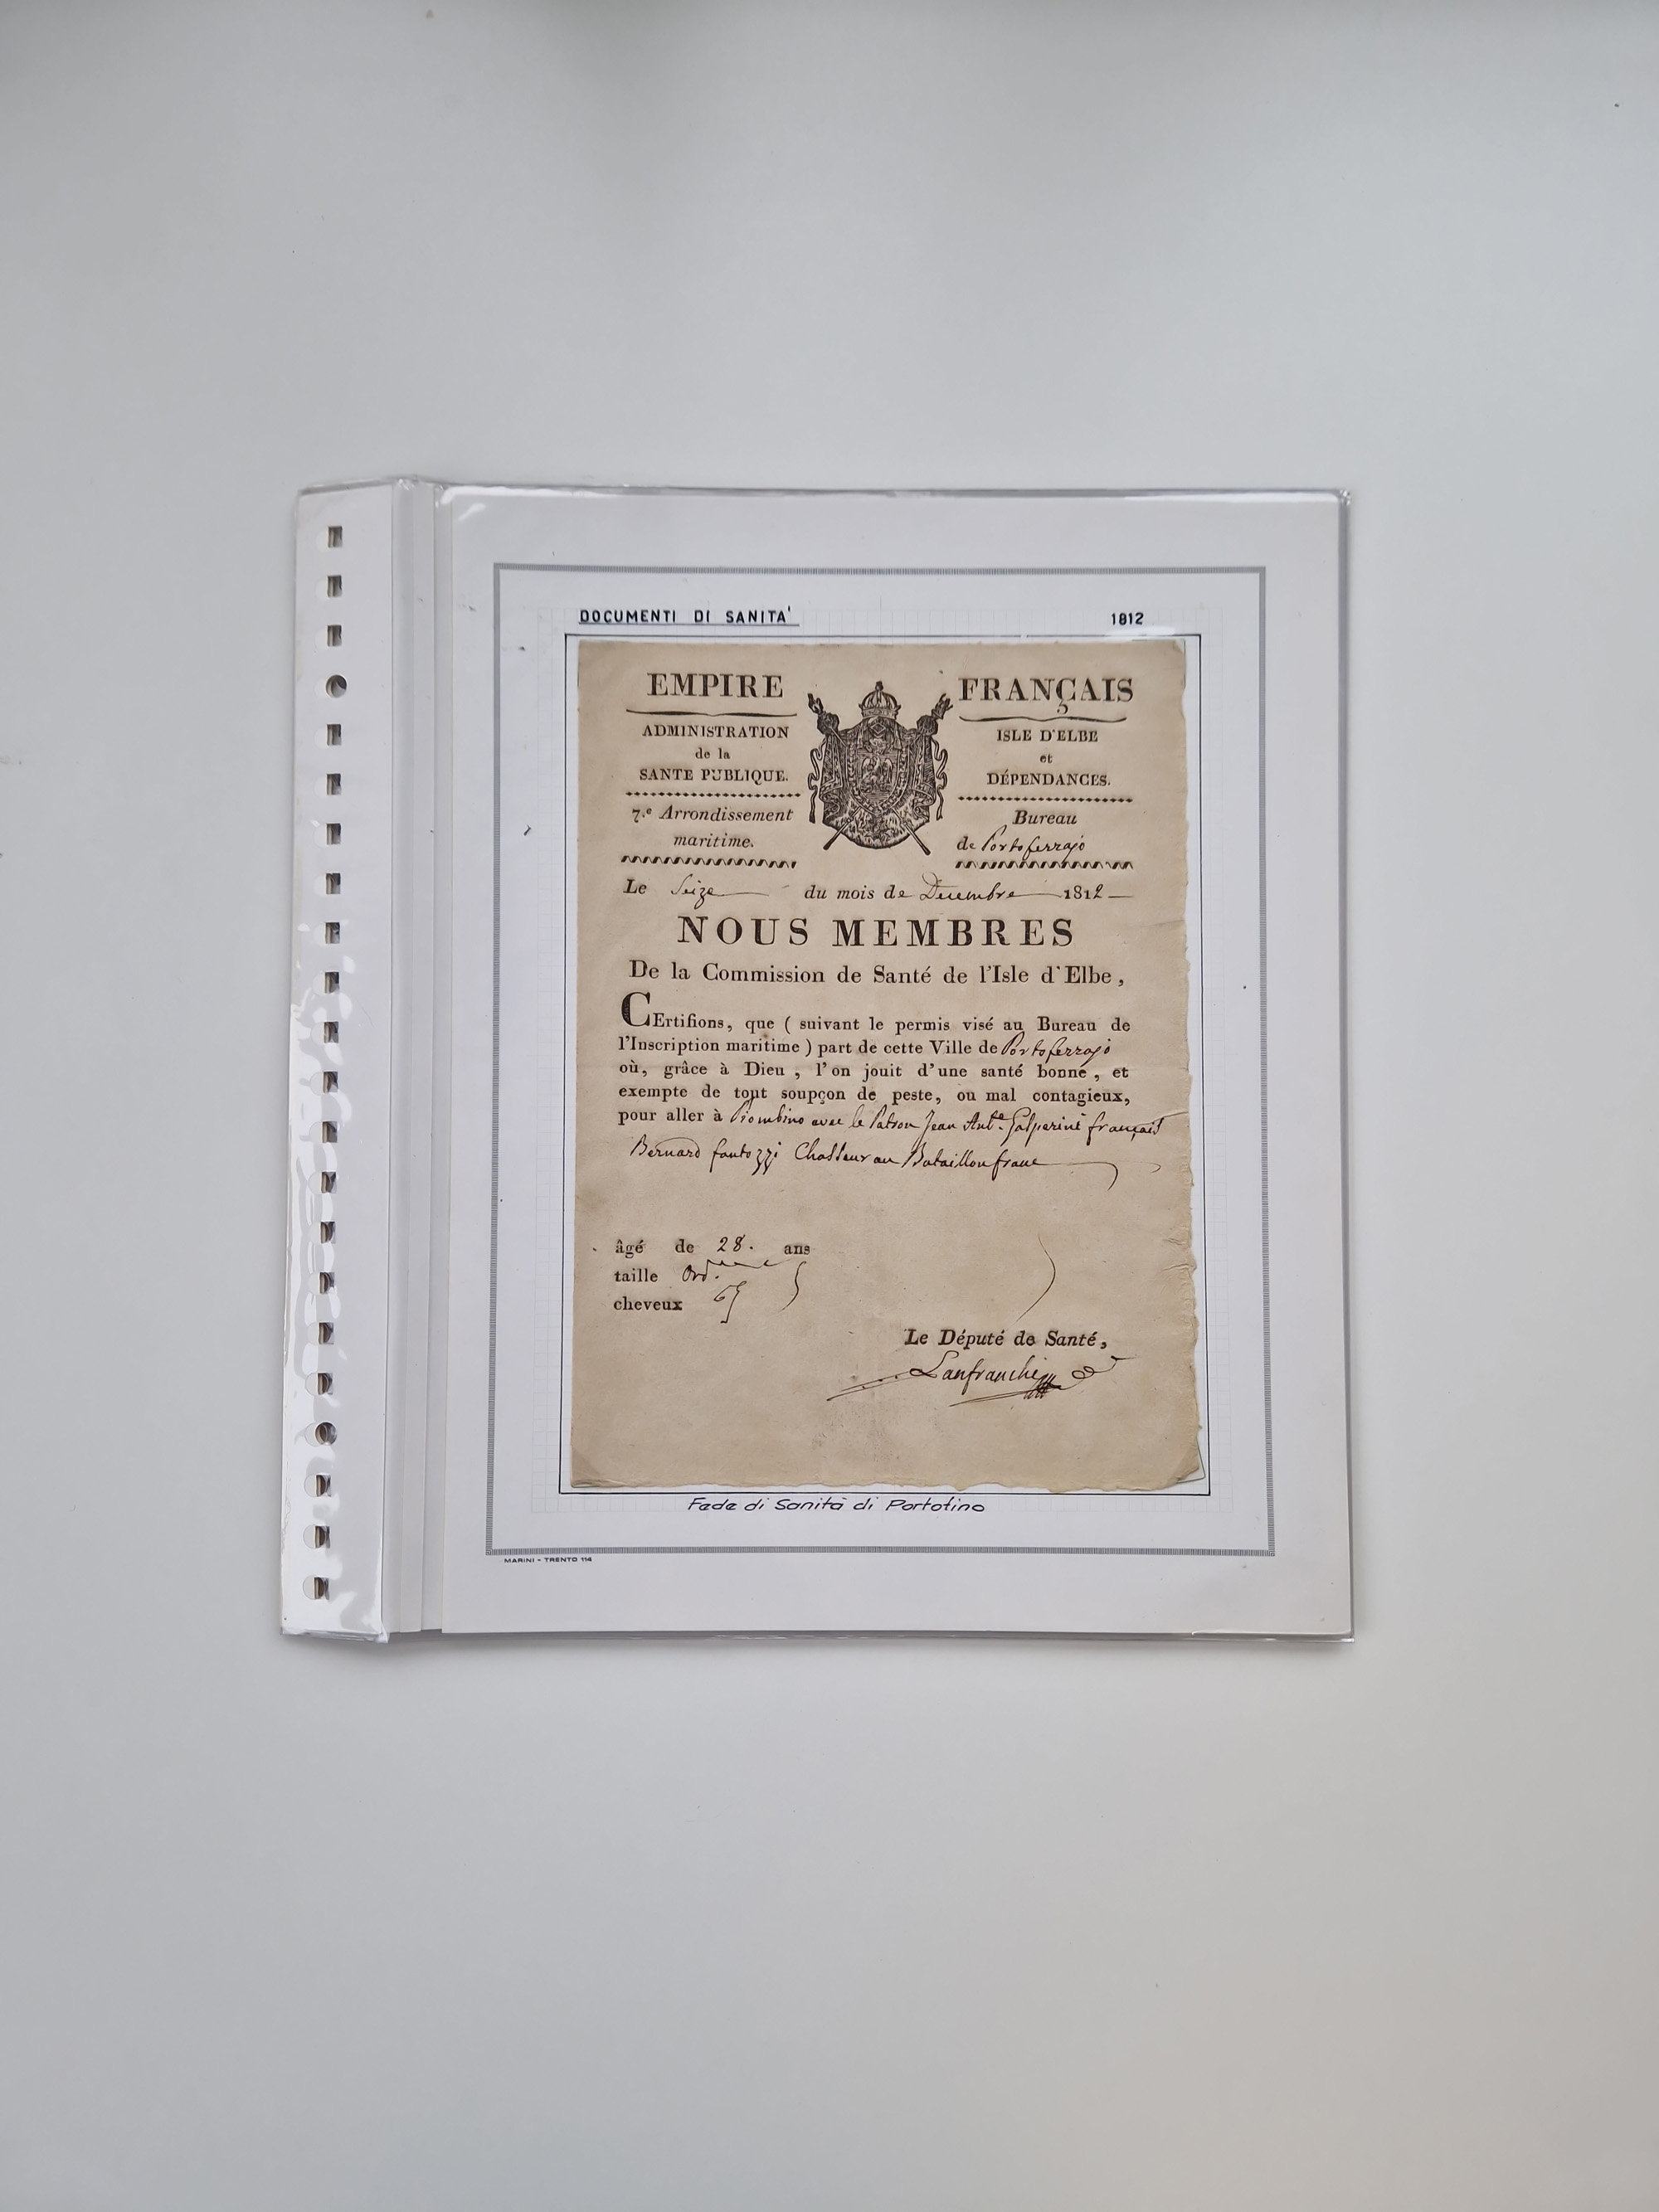 DOCUMENTI DI SANITA' 1812
EMPIRE FRANÇAIS
ADMINISTRATION
de la
SANTE PUBLIQUE.
7.e Arrondissement
maritime.
ISLE D'ELBE
et
DÉPENDANCES.
Bureau
de Portoferrajo
Le Seize du mois de Decembre 1812
NOUS MEMBRES
De la Commission de Santé de l'Isle d'Elbe,
CErtifions, que ( suivant le permis visé au Bureau de
l'Inscription maritime ) part de cette Ville de Portoferrajo
où, grâce à Dieu , l'on jouit d'une santé bonne , et
exempte de tout soupçon de peste, ou mal contagieux,
pour aller à Piombino avec le Patron Jean Ant.e français
Bernard fantozzi Chasseur au Bataillon franc
âgé de 28. ans
taille Ord.
cheveux
Le Député de Santé,
Lanfranchi
Fede di Sanità di Portofino
MARINI - TRENTO 114